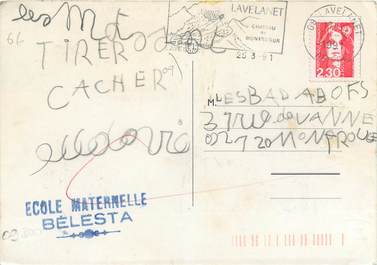 les Mots
66
TIRER
CACHER
LAVELANET
CHATEAU
MONTSEGUR
25-3-91
09 LAVELANET
2,30
MLESBADABOFS
37 rue de VANNE
92120 MONTROUGE
ludovic
ECOLE MATERNELLE
BÉLESTA